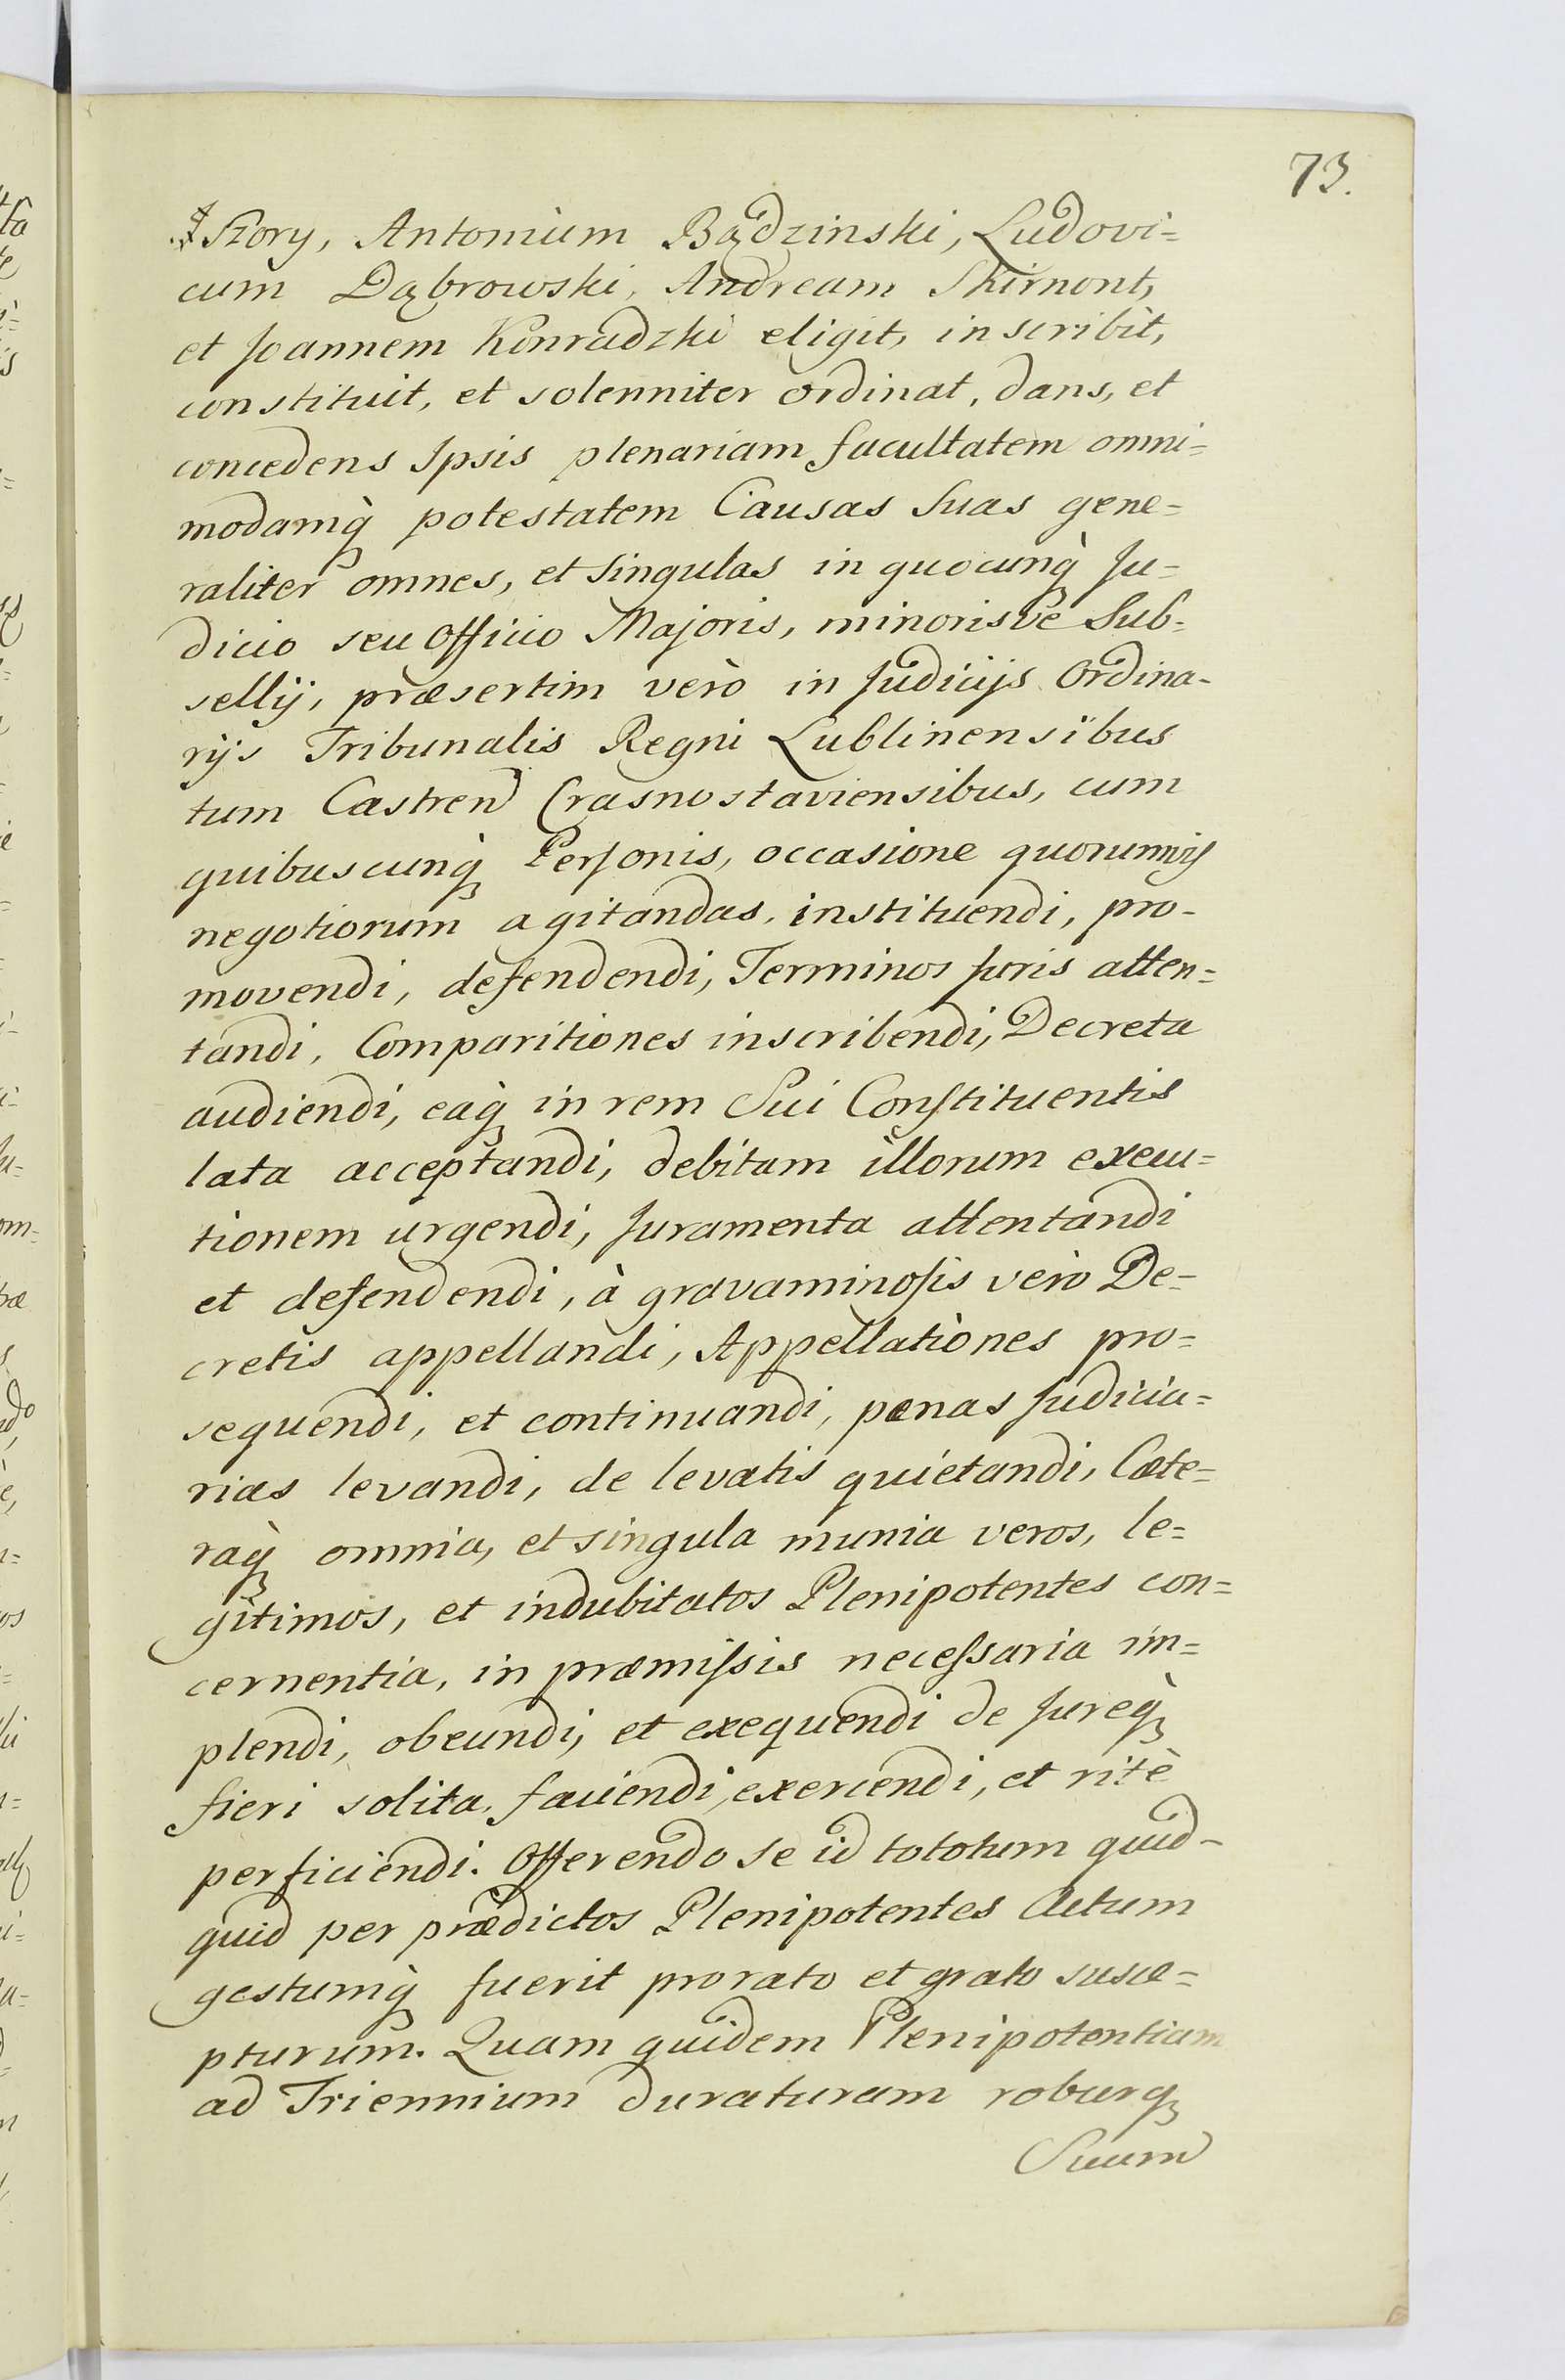 73.
Skory, Antonium Bądzinski, Ludovi=
cum Dąbrowski, Andream Skirnont,
et Joannem Konradzki eligit, inscribit,
constituit, et solenniter ordinat, dans, et
concedens Ipsis plenariam facultatem omni=
modamq̀ potestatem Causas Suas gene=
raliter omnes, et Singulas in quocunq̀ Ju=
dicio seu Officio Majoris, minorisvè Sub=
sellij, præsertim verò in Judicijs Ordina-
rijs Tribunalis Regni Lublinensibus
tum Castren Crasnostaviensibus, cum
quibuscunq̀ Personis, occasione quorumvis
negotiorum agitandas, instituendi, pro-
movendi, defendendi, Terminos Juris atten=
tandi, Comparitiones inscribendi, Decreta
audiendi, eaq̀ in rem Sui Constituentis
lata acceptandi, debitam illorum execu=
tionem urgendi, Juramenta attentandi
et defendendi, à gravaminosis verò De=
cretis appellandi, Appellationes pro=
sequendi, et continuandi, pœnas Judicia=
rias levandi, de levatis quietandi, Cæte=
raq̀ omnia, et singula munia veros, le=
gitimos, et indubitatos Plenipotentes con=
cernentia, in præmissis necessaria im=
plendi, obeundi, et exequendi de Jureq̀
fieri solita, faciendi, exercendi, et ritè
perficiendi. Offerendo se id tototum quid-
quid per prædictos Plenipotentes Actum
gestumq̀ fuerit prorato et grato susce=
pturum. Quam quidem Plenipotentiam
ad Triennium duraturam roburq
Suum